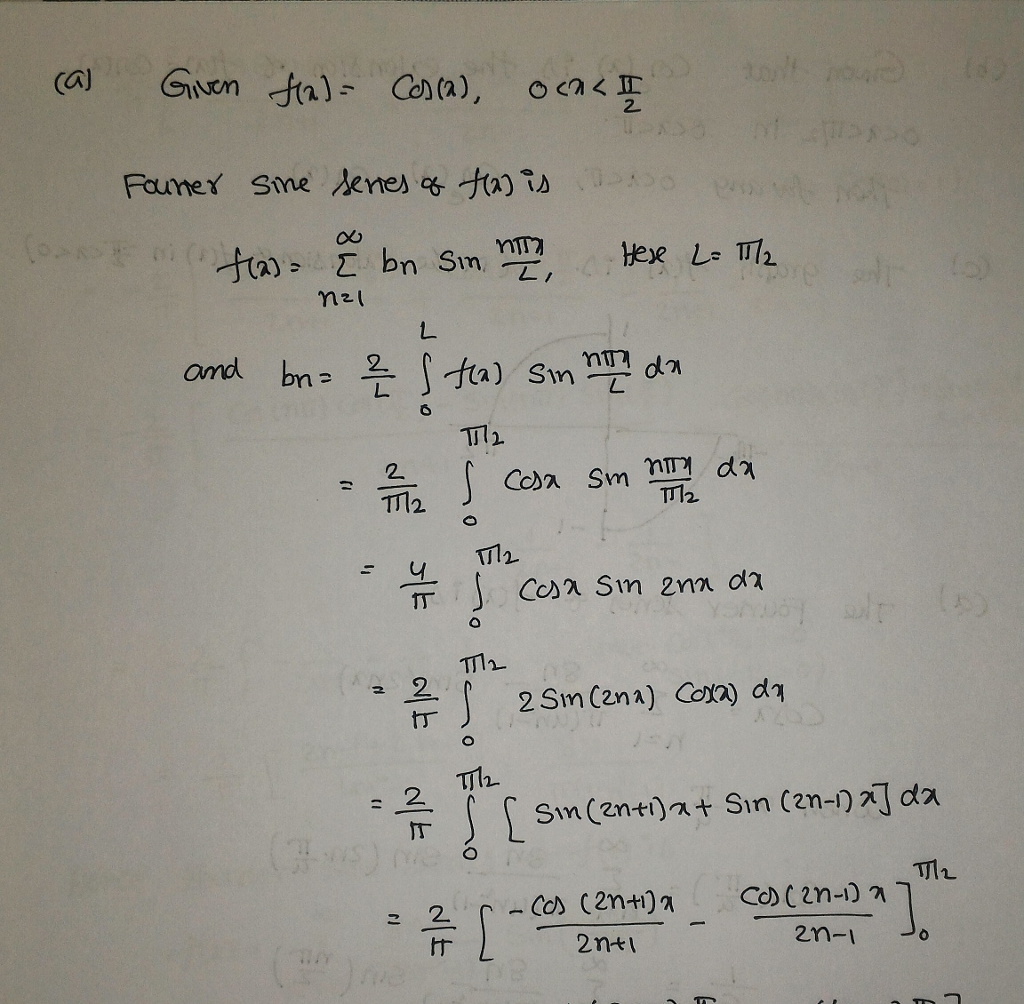 (a) Given f(x) = Cos(x), 0<x<π/2
Fourier Sine Series of f(x) is
f(x) = ∞ Σ n=1 bn Sin nπx/L, Here L = π/2
and bn = 2/L ∫₀^L f(x) Sin nπx/L dx
= 2/(π/2) ∫₀^(π/2) Cosx Sin nπx/(π/2) dx
= 4/π ∫₀^(π/2) Cosx Sin 2nx dx
= 2/π ∫₀^(π/2) 2 Sin(2nx) Cos(x) dx
= 2/π ∫₀^(π/2) [ Sin(2n+1)x + Sin(2n-1)x] dx
= 2/π [ -Cos(2n+1)x/2n+1 - Cos(2n-1)x/2n-1 ]₀^(π/2)